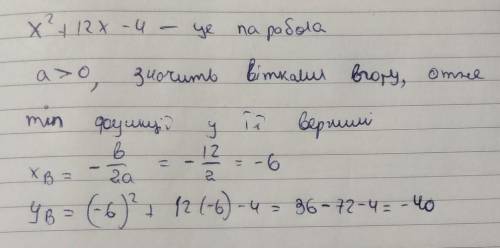 x² + 12x - 4 — це парабола
a > 0, значить вітками вгору, отже
min функції у її вершині
x_B = -b/2a = -12/2 = -6
y_B = (-6)² + 12(-6) - 4 = 36 - 72 - 4 = -40